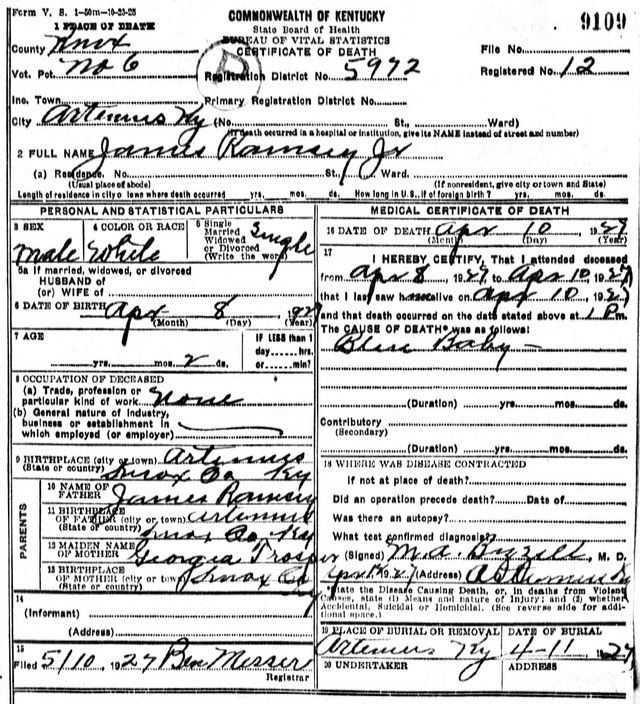 Form V. S. 1-50m-10-23-25
COMMONWEALTH OF KENTUCKY
State Board of Health
BUREAU OF VITAL STATISTICS
CERTIFICATE OF DEATH
9109
1 PLACE OF DEATH
County Knox
File No.
Vot. Pct. No 6
Registration District No. 5972
Registered No. 12
Inc. Town
Primary Registration District No.
City Artemus Ky (No. St., Ward)
(If death occurred in a hospital or institution, give its NAME instead of street and number)
2 FULL NAME James Ramsey Jr
(a) Residence. No. St., Ward.
(Usual place of abode) (If nonresident, give city or town and State)
Length of residence in city or town where death occurred yrs. mos. ds. How long in U.S., if of foreign birth? yrs. mos. ds.
PERSONAL AND STATISTICAL PARTICULARS
3 SEX
Male
4 COLOR OR RACE
White
5 Single
Married
Widowed
or Divorced
(Write the word)
Single
5a If married, widowed, or divorced
HUSBAND of
(or) WIFE of
6 DATE OF BIRTH Apr 8 1927
(Month) (Day) (Year)
7 AGE
IF LESS than 1
day......hrs.
or......min?
yrs. mos. 2 ds.
8 OCCUPATION OF DECEASED
(a) Trade, profession or
particular kind of work None
(b) General nature of industry,
business or establishment in
which employed (or employer)
9 BIRTHPLACE (city or town) Artemus
(State or country) Knox Co. Ky
PARENTS
10 NAME OF
FATHER James Ramsey
11 BIRTHPLACE
OF FATHER (city or town) Artemus
(State or country) Knox Co, Ky
12 MAIDEN NAME
OF MOTHER Georgia Trosper
13 BIRTHPLACE
OF MOTHER (city or town) Knox Co
(State or country) Ky
14
(Informant)
(Address)
15
Filed 5/10, 1927 Ben Messer
Registrar
MEDICAL CERTIFICATE OF DEATH
16 DATE OF DEATH Apr 10, 1927
(Month) (Day) (Year)
17
I HEREBY CERTIFY, That I attended deceased
from Apr 8, 1927, to Apr 10, 1927
that I last saw him alive on Apr 10, 1927
and that death occurred on the date stated above at 1 Pm.
The CAUSE OF DEATH* was as follows:
Blue Baby
(Duration) yrs. mos. ds.
Contributory
(Secondary)
(Duration) yrs. mos. ds.
18 WHERE WAS DISEASE CONTRACTED
If not at place of death?
Did an operation precede death? Date of
Was there an autopsy?
What test confirmed diagnosis?
(Signed) M. A. , M. D.
1927 (Address) Artemus Ky
*State the Disease Causing Death, or, in deaths from Violent
Causes, state (1) Means and nature of Injury; and (2) whether
Accidental, Suicidal or Homicidal. (See reverse side for addi-
tional space.)
19 PLACE OF BURIAL OR REMOVAL
Artemus Ky
DATE OF BURIAL
4-11 1927
20 UNDERTAKER
ADDRESS